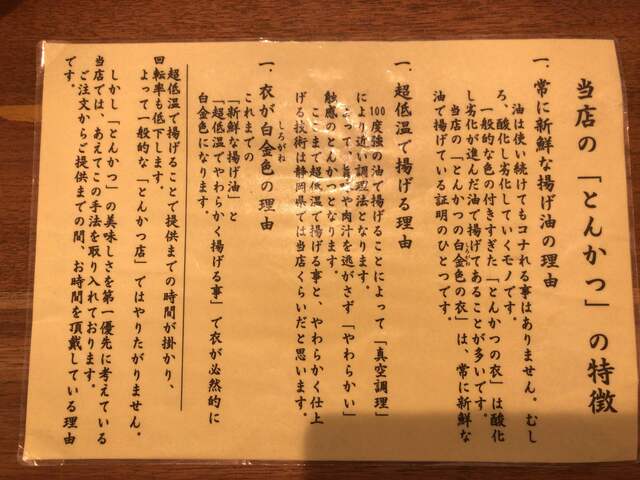 当店の「とんかつ」の特徴
一．常に新鮮な揚げ油の理由
油は使い続けてもコナれる事はありません。むし
ろ、酸化し劣化していくモノです。
一般的な色の付きすぎた「とんかつの衣」は酸化
し劣化が進んだ油で揚げてあることが多いです。
当店の「とんかつの白金色の衣」は、常に新鮮な
油で揚げている証明のひとつです。
一．超低温で揚げる理由
100度強の油で揚げることによって「真空調理」
により近い調理法となります。
よって、旨味や肉汁を逃がさず「やわらかい」
触感のとんかつとなります。
ここまで超低温で揚げる事と、やわらかく仕上
げる技術は静岡県では当店くらいだと思います。
一．衣が白金色の理由
しろがね
これまでの
「新鮮な揚げ油」と
「超低温でやわらかく揚げる事」で衣が必然的に
白金色になります。
超低温で揚げることで提供までの時間が掛かり、
回転率も低下します。
よって一般的な「とんかつ店」ではやりたがりません。
しかし「とんかつ」の美味しさを第一優先に考えている
当店では、あえてこの手法を取り入れております。
ご注文からご提供までの間、お時間を頂戴している理由
です。